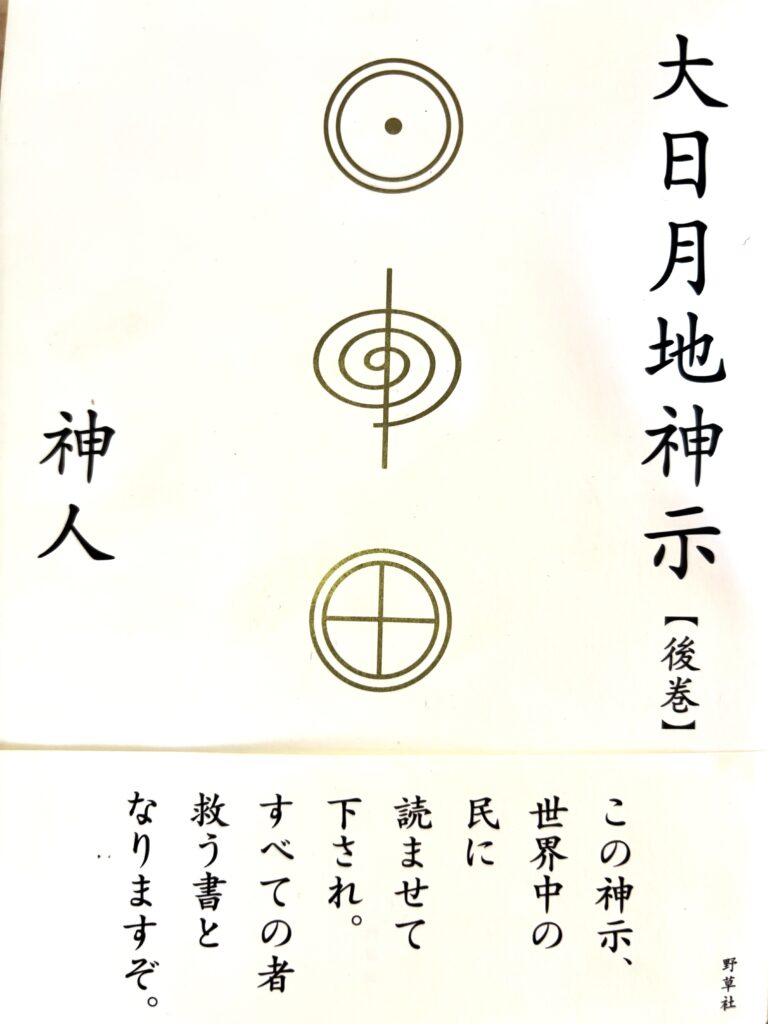 大日月地神示【後巻】
神人
この神示、
世界中の
民に
読ませて
下され。
すべての者
救う書と
なりますぞ。
野草社